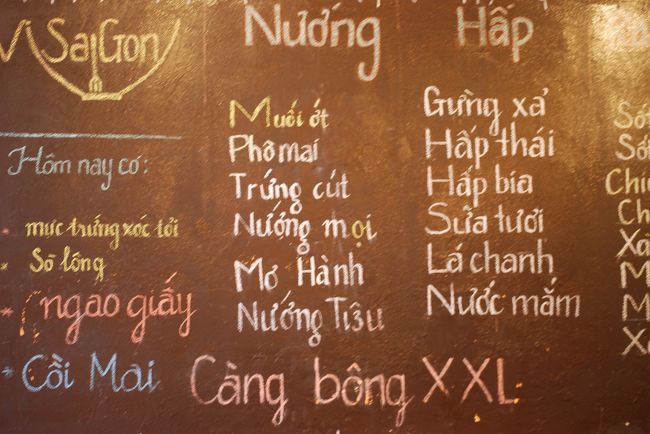 Vị SaiGon
Hôm nay có:
* mực trứng xóc tỏi
* Sò lông
* ngao giấy
* Cồi Mai
Nướng
Muối ớt
Phô mai
Trứng cút
Nướng mọi
Mơ Hành
Nướng Tiêu
Hấp
Gừng xả
Hấp thái
Hấp bia
Sữa tươi
Lá chanh
Nước mắm
Càng bông XXL